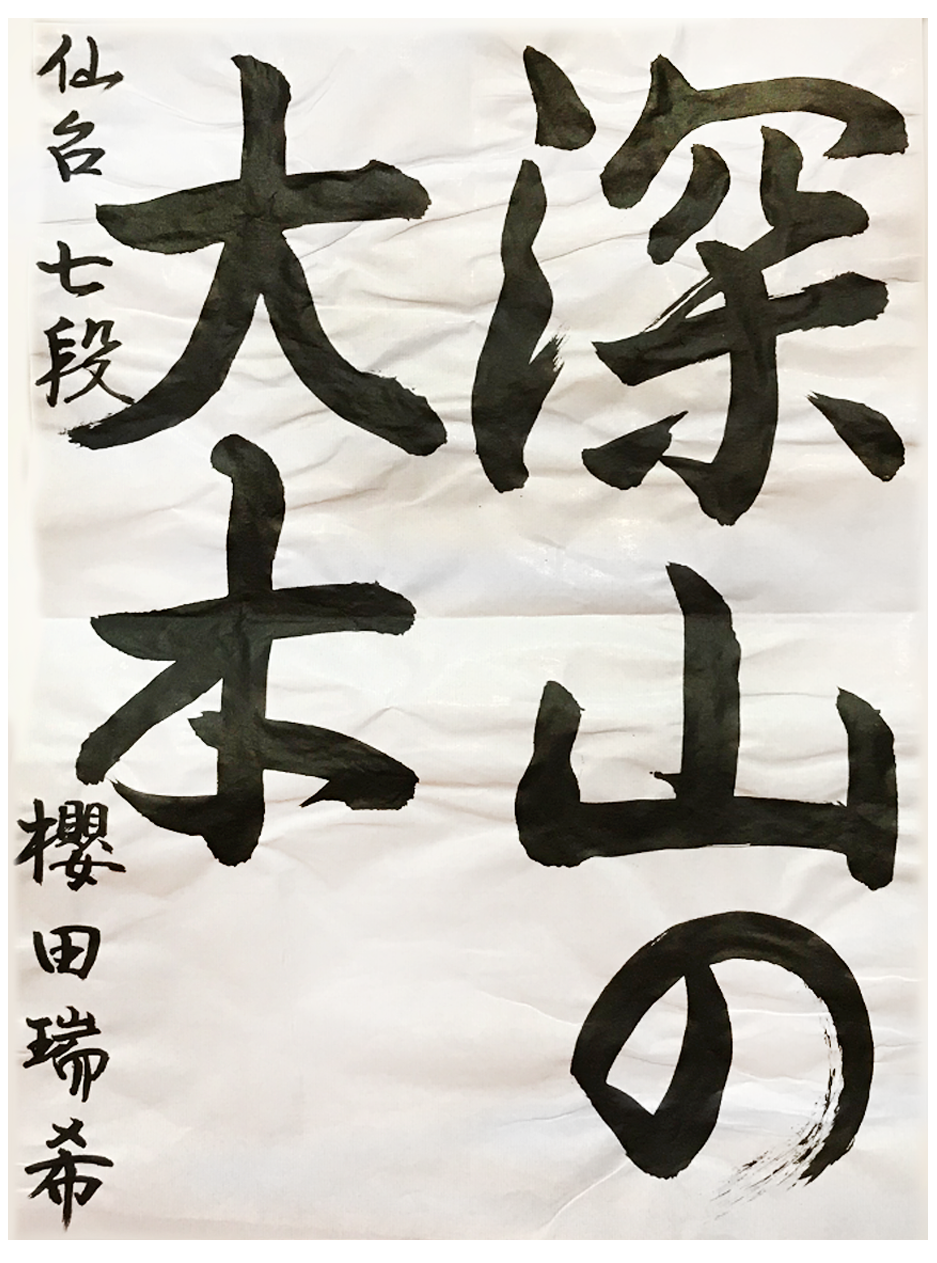 深山の
大木
仙台 七段 櫻田瑞希